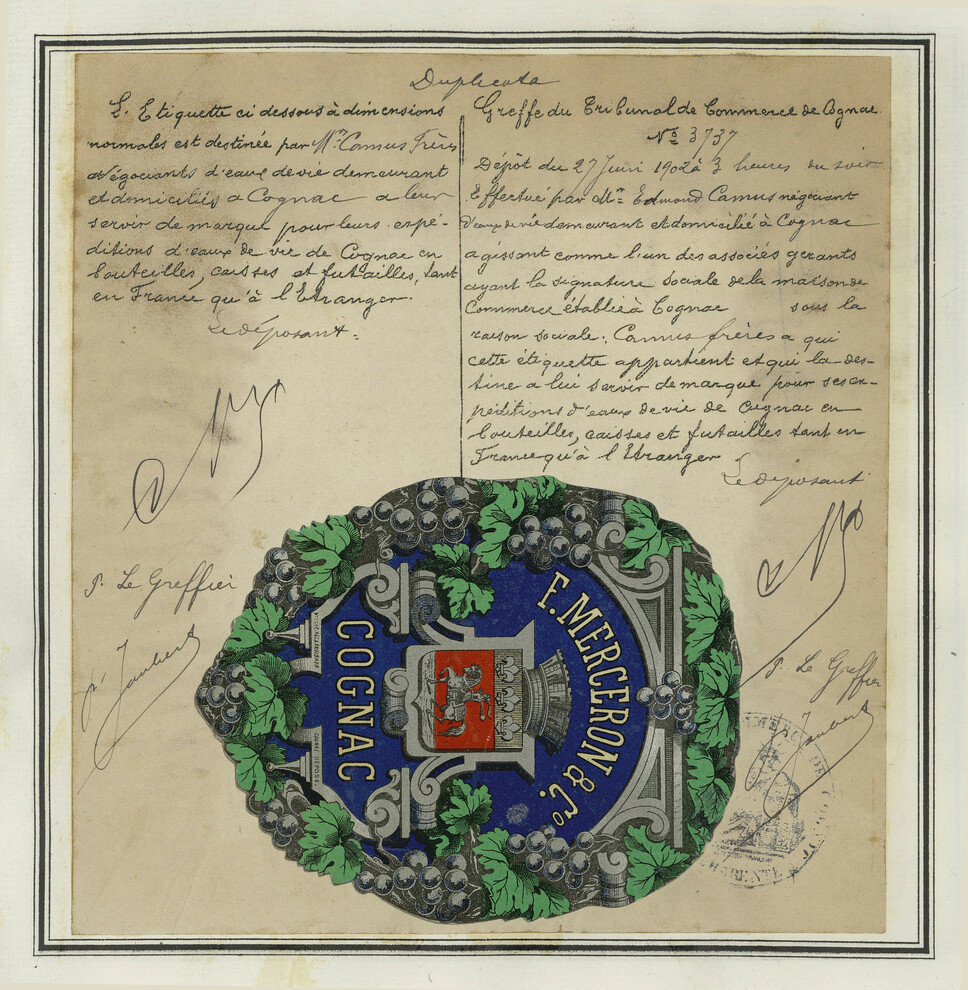 Duplicata
L'Etiquette ci dessous à dimensions
normales est destinée par Mrs Camus Frères
Négociants d'eaux de vie demeurant
et domiciliés a Cognac a leur
servir de marque pour leurs expé-
ditions d'eaux de vie de Cognac en
bouteilles, caisses et futailles, tant
en France qu'à l'Etranger.
Le déposant.
P. Le Greffier
Greffe du Tribunal de Commerce de Cognac
No 3737
Dépôt du 27 Juin 1902 à 3 heures du soir
Effectué par Mr Edmond Camus négociant
d'eaux de vie demeurant et domicilié à Cognac
agissant comme l'un des associés gérants
ayant la signature sociale de la maison de
Commerce établie à Cognac sous la
raison sociale: Camus frères a qui
cette étiquette appartient et qui la des-
tine a lui servir de marque pour ses ex-
péditions d'eaux de vie de Cognac en
bouteilles, caisses et futailles tant en
France qu'à l'Etranger
Le déposant
P. Le Greffier
F. MERCERON & Co.
COGNAC
DEPOSE
COMMERCE DE
CHARENTE